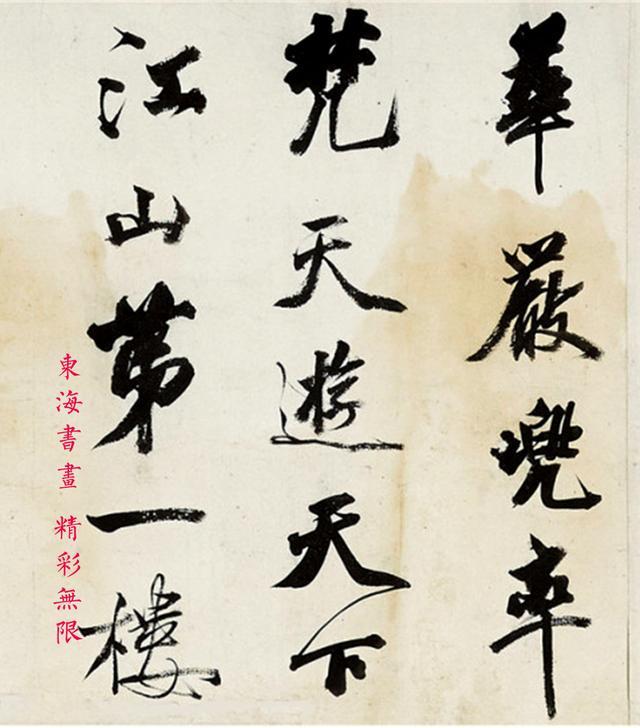 華嚴兜率
梵天遊天下
江山第一樓
東海書畫 精彩無限